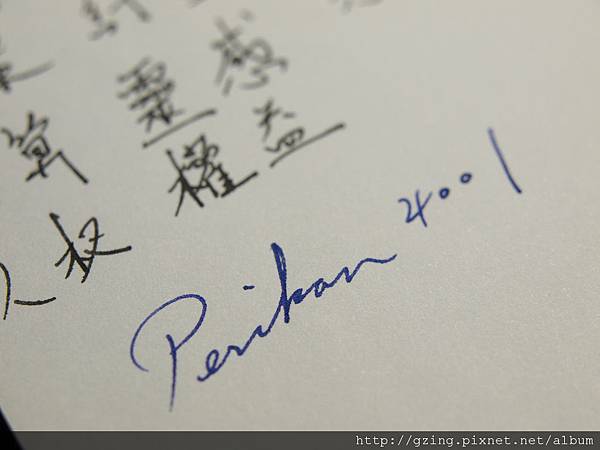 靈感
人权權益
Perikan 4001
http://gzing.pixnet.net/album